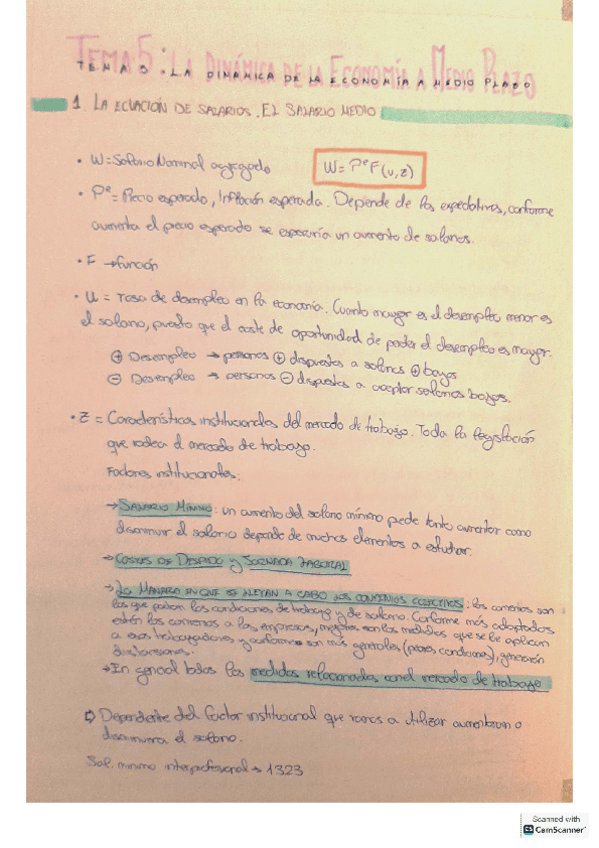 TEMA 5: LA DINÁMICA DE LA ECONOMÍA A MEDIO PLAZO
1. LA ECUACIÓN DE SALARIOS. EL SALARIO MEDIO
• W = Salario Nominal agregado
W = Pᵉ F(u, z)
• Pᵉ = Precio esperado, Inflación esperada. Depende de las expectativas, conforme
aumenta el precio esperado se esperaría un aumento de salarios.
• F → función
• U = Tasa de desempleo en la economía. Cuanto mayor es el desempleo menor es
el salario, puesto que el coste de oportunidad de perder el desempleo es mayor.
⊕ Desempleo → personas ⊕ dispuestas a salarios ⊕ bajos
⊖ Desempleo → personas ⊖ dispuestas a aceptar salarios bajos.
• Z = Características institucionales del mercado de trabajo. Toda la legislación
que rodea el mercado de trabajo.
Factores institucionales:
→ SALARIO MÍNIMO: un aumento del salario mínimo puede tanto aumentar como
disminuir el salario depende de muchos elementos a estudiar.
→ COSTES DE DESPIDO Y JORNADA LABORAL
→ LA MANERA EN QUE SE LLEVAN A CABO LOS CONVENIOS COLECTIVOS: los convenios son
los que las condiciones de trabajo y de salario. Conforme más adaptados
estén los convenios a las empresas, mejores son las medidas que se le aplican
a esos trabajadores y conforme son más generales (peores condiciones), generarán
→ En general todas las medidas relacionadas con el mercado de trabajo
⇨ Dependiente del factor institucional que vamos a utilizar aumentara o
disminuira el salario.
Sal. minimo interprofesional → 1323
Scanned with
CamScanner